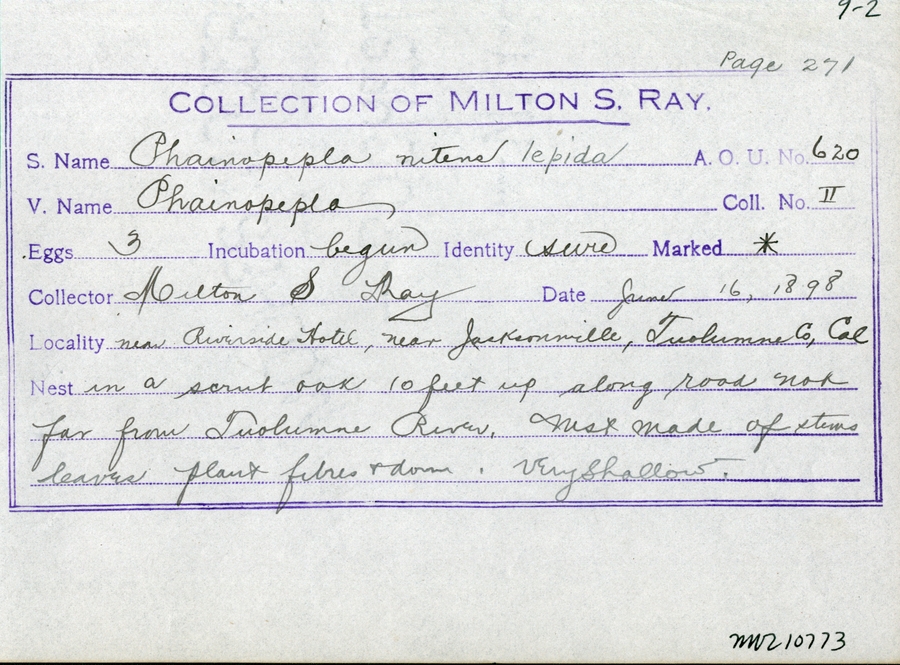 9-2
Page 271
COLLECTION OF MILTON S. RAY.
S. Name Phainopepla nitens lepida A. O. U. No. 620
V. Name Phainopepla Coll. No. II
Eggs 3 Incubation begun Identity sure Marked *
Collector Milton S Ray Date June 16, 1898
Locality near Riverside Hotel, near Jacksonville, Tuolumne Co, Cal
Nest in a scrub oak 10 feet up along road not
far from Tuolumne River. Nest made of stems
leaves plant fibres + down. Very Shallow.